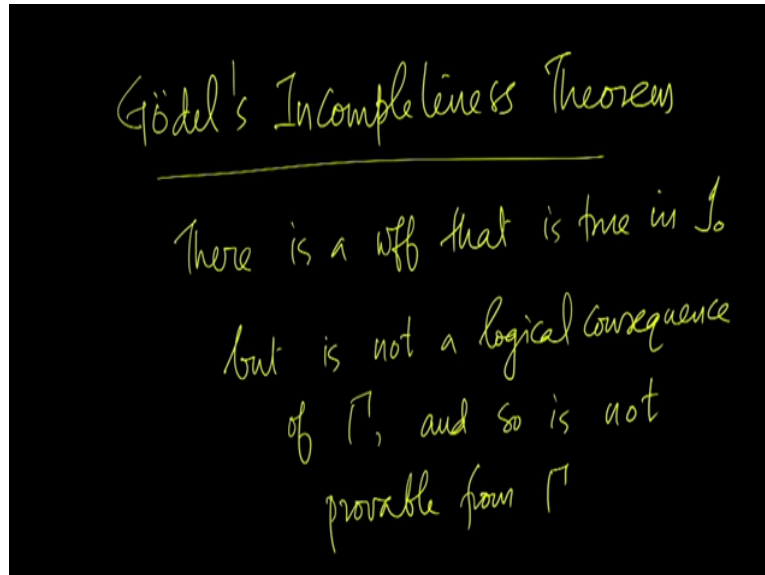 Gödel's Incompleteness Theorem
There is a wff that is true in I₀
but is not a logical consequence
of Γ, and so is not
provable from Γ